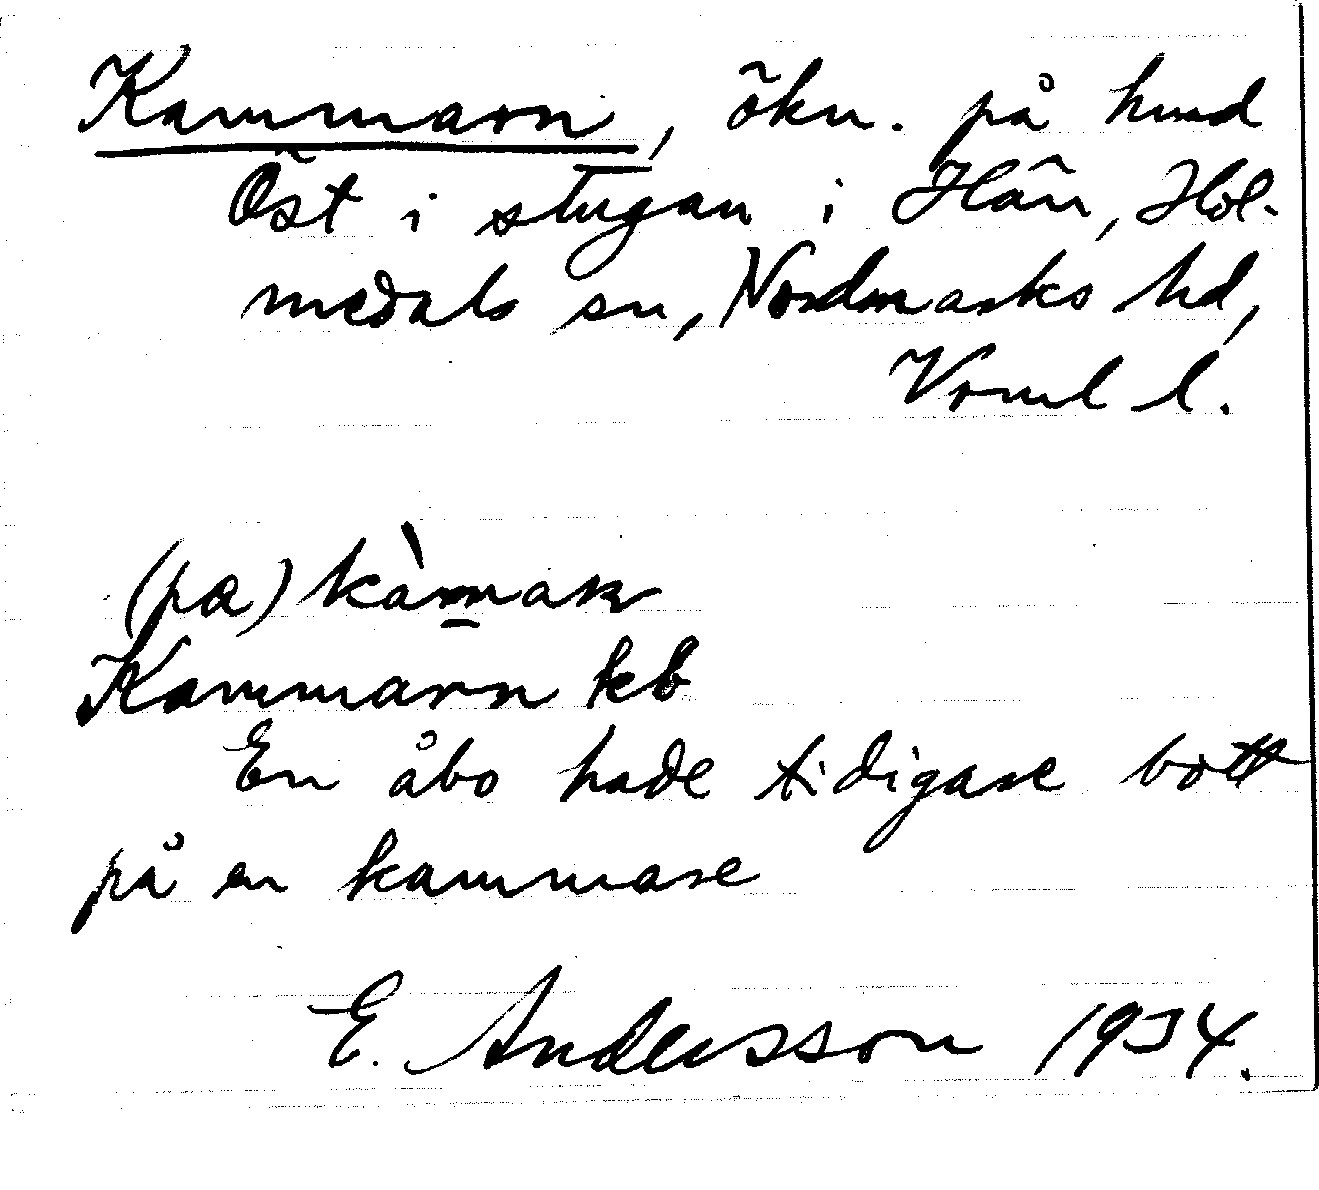 Kammarn, ökn. på hmd
Öst i stugan i Hån, Hol-
medals sn, Nordmarks hd,
Vrml l.
(pa) kàmar
Kammarn kb
En åbo hade tidigare bott
på en kammare
E. Andersson 1934.